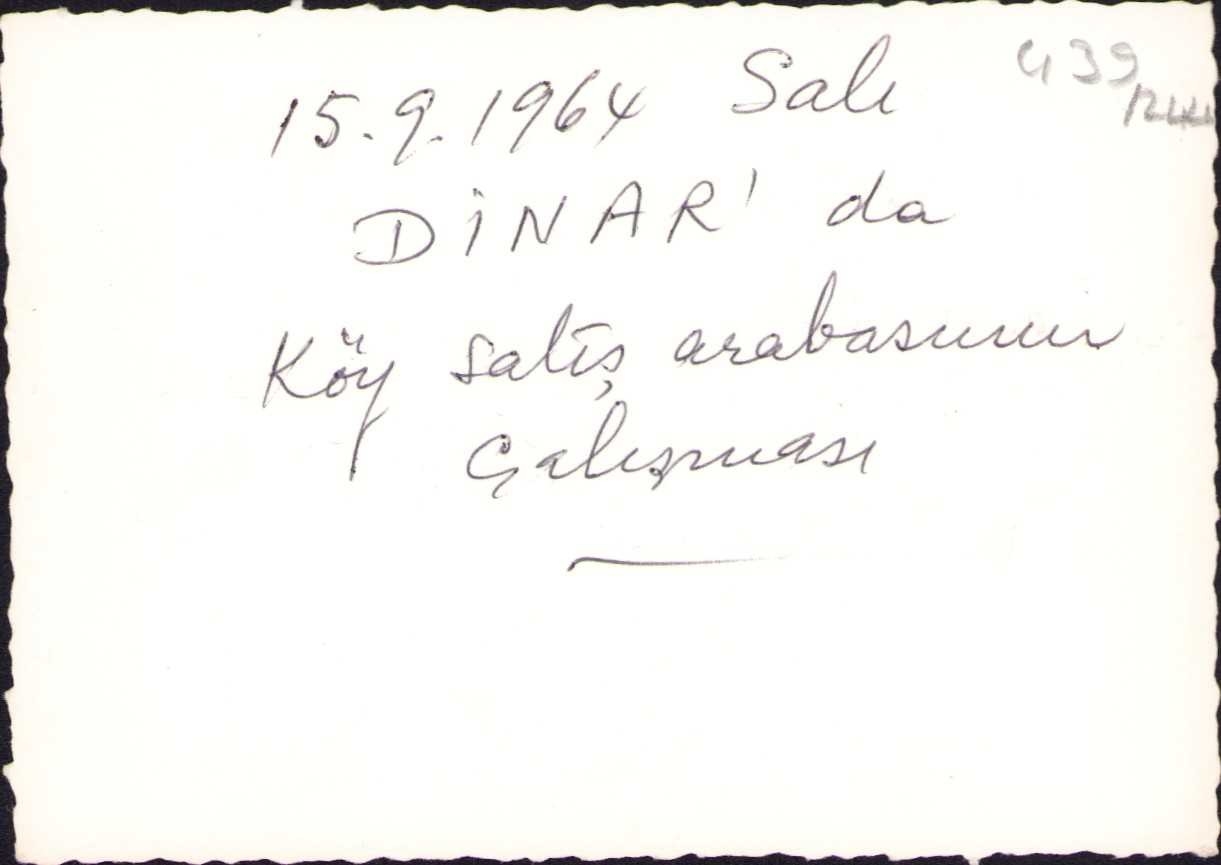 439
15.9.1964 Salı
DİNAR' da
Köy satış arabasının
Çalışması